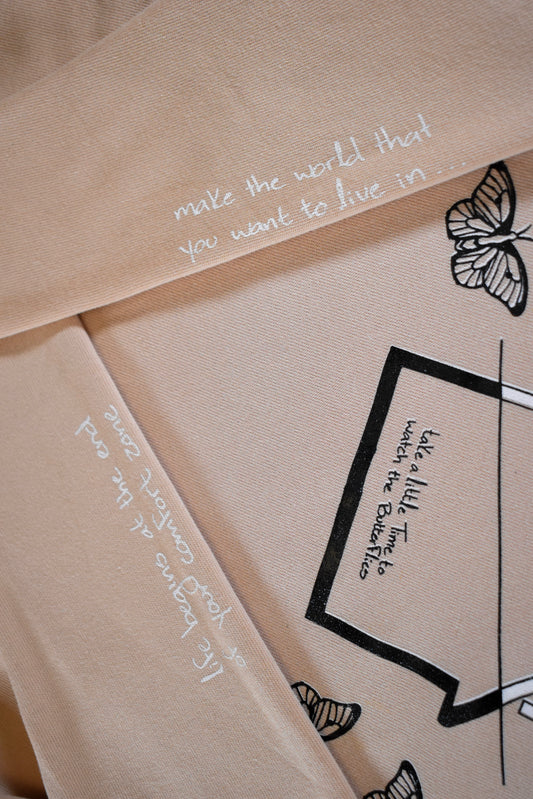 make the world that
you want to live in ...
life begins at the end
of your comfort zone
take a little Time to
watch the Butterflies